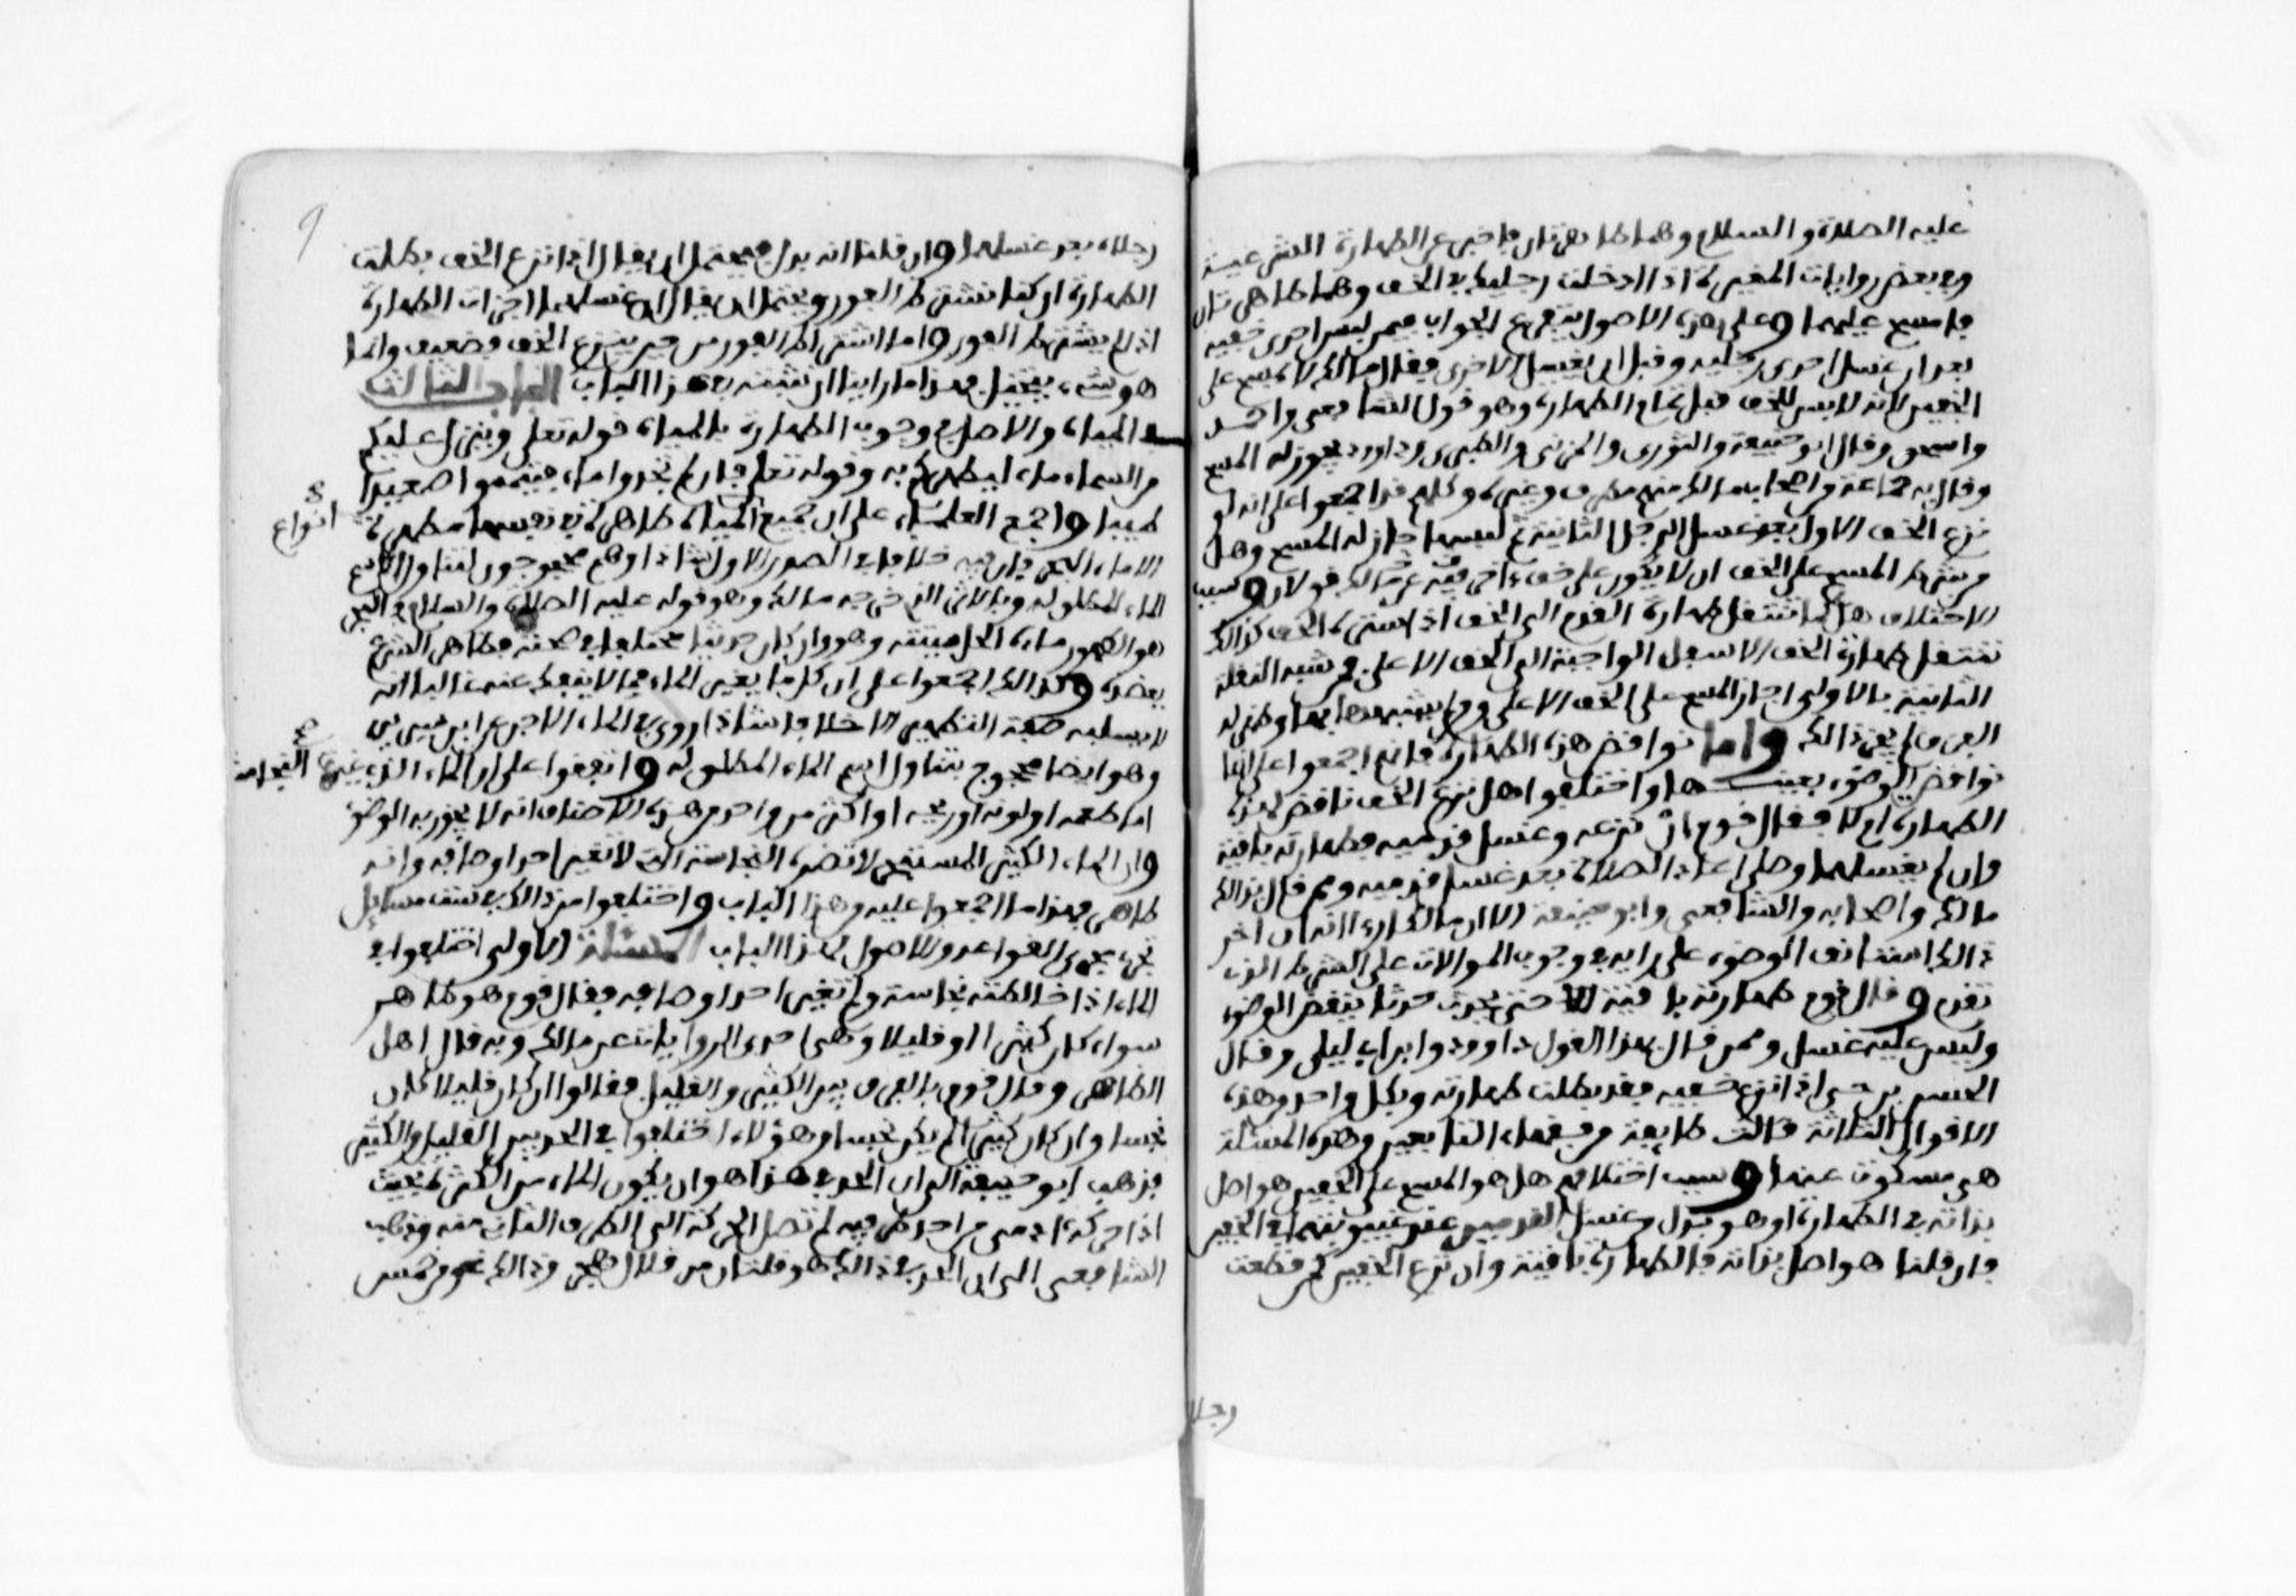 عليه الصلاة والسلام وهما طاهرتان فاخبر عن الطهارة الشرعية
وفي بعض روايات المغيرة اذا ادخلت رجليك في الخف وهما طاهرتان
فامسح عليهما وعلى هذه الاصول يتفرع الجواب فيمن لبس احدى خفيه
بعد ان غسل احدى رجليه وقبل ان يغسل الاخرى فقال مالك لا يمسح على
الخفين لانه لابس للخف قبل تمام الطهارة وهو قول الشافعي واحمد
واسحق وقال ابو حنيفة والثوري والمزني والطبري وداود يجوز له المسح
وقال به جماعة واصحاب مالك منهم مطرف وغيره وكلهم قد اجمعوا على انه لو
نزع الخف الاول بعد غسل الرجل الثانية ثم لبسها جاز له المسح وهل
من شرط المسح على الخف ان لا يكون على خف ءاخر فيه عن مالك قولان وسبب
الاختلاف هل كما تنتقل طهارة القدم الى الخف اذا ستره الخف كذالك
تنتقل طهارة الخف الاسفل الواجبة الى الخف الاعلى فمن شبه النقلة
الثانية بالاولى اجاز المسح على الخف الاعلى ومن لم يشبهها بها وظهر له
الفرق لم يجز ذالك واما نواقض هذه الطهارة فانهم اجمعوا على انها
نواقض الوضوء بعينها واختلفوا هل نزع الخف ناقض لهذه
الطهارة ام لا فقال قوم ان نزعه وغسل قدميه فطهارته باقية
وان لم يغسلهما وصلى اعاد الصلاة بعد غسل قدميه وممن قال بذالك
مالك واصحابه والشافعي وابو حنيفة الا ان مالكا رءا انه ان اخر
ذالك استانف الوضوء على رايه في وجوب الموالات على الشرط الذي
تقدم وقال قوم طهارته باقية حتى يحدث حدثا ينقض الوضوء
وليس عليه غسل وممن قال بهذا القول داوود وابن ابي ليلى وقال
الحسن بن حي اذا نزع خفيه فقد بطلت طهارته وبكل واحد من هذه
الاقوال الثلاثة قالت طايفة من فقهاء التابعين وهذه المسئلة
هي مسكوت عنها وسبب اختلافهم هل هو المسح على الخفين هو اصل
بذاته في الطهارة او هو بدل من غسل القدمين عند غيبوبتهما في الخفين
فان قلنا هو اصل بذاته فالطهارة باقية وان نزع الخفين كمن قطعت
رجلا
رجلاه بعد غسلهما وان قلنا انه بدل فيحتمل ان يقال اذا نزع الخف بطلت
الطهارة ان كنا نشترط الفور ويحتمل ان يقال ان غسلهما اجزات الطهارة
اذا لم يشترط الفور واما اشتراط الفور من حين ينزع الخف فضعيف وانما
هو شيء يتخيل فهذا ما راينا ان نثبته في هذا الباب الباب الثالث
في المياه والاصل في وجوب الطهارة بالمياه قوله تعلى وينزل عليكم
من السماء ماء ليطهركم به وقوله تعلى فان لم تجدوا ماء فتيمموا صعيدا
طيبا واجمع العلماء على ان جميع المياه طاهرة في نفسها مطهرة
انواع
الا ماء البحر فان فيه خلافا في الصدر الاول شاذا وهم محجوجون بتناول اسم
الماء المطلق له وبالاثر الذي خرجه مالك وهو قوله عليه الصلاة والسلام في البحر
هو الطهور ماءه الحل ميتته وهو وان كان حديثا مختلفا في صحته فظاهر الشرع
يعضده وكذالك اجمعوا على ان كل ما يغير الماء مما لا ينفك عنه غالبا انه
لا يسلبه صفة التطهير الا خلافا شاذا روي في الماء الاجن عن ابن سيرين
وهو ايضا محجوج بتناول اسم الماء المطلق له واتفقوا على ان الماء الذي غيرت النجاسة
اما طعمه او لونه او ريحه او اكثر من واحد من هذه الاوصاف انه لا يجوز به الوضوء
وان الماء الكثير المستبحر لا تضره النجاسة التي لا تغير احد اوصافه وانه
طاهر فهذا ما اجمعوا عليه من هذا الباب واختلفوا من ذالك في ست مسايل
تجري مجرى القواعد والاصول لهذا الباب المسئلة الاولى اختلفوا في
الماء اذا خالطته نجاسة ولم تغير احد اوصافه فقال قوم هو طاهر
سواء كان كثيرا او قليلا وهي احدى الروايات عن مالك وبه قال اهل
الظاهر وقال قوم بالفرق بين الكثير والقليل فقالوا ان كان قليلا كان
نجسا وان كان كثيرا لم يكن نجسا وهؤلاء اختلفوا في الحد بين القليل والكثير
فذهب ابو حنيفة الى ان الحد في هذا هو ان يكون الماء من الكثرة بحيث
اذا حركه ادمي من احد طرفيه لم تصل الحركة الى الطرف الثاني منه وذهب
الشافعي الى ان الحد في ذالك هو قلتان من قلال هجر وذالك نحو من خمس